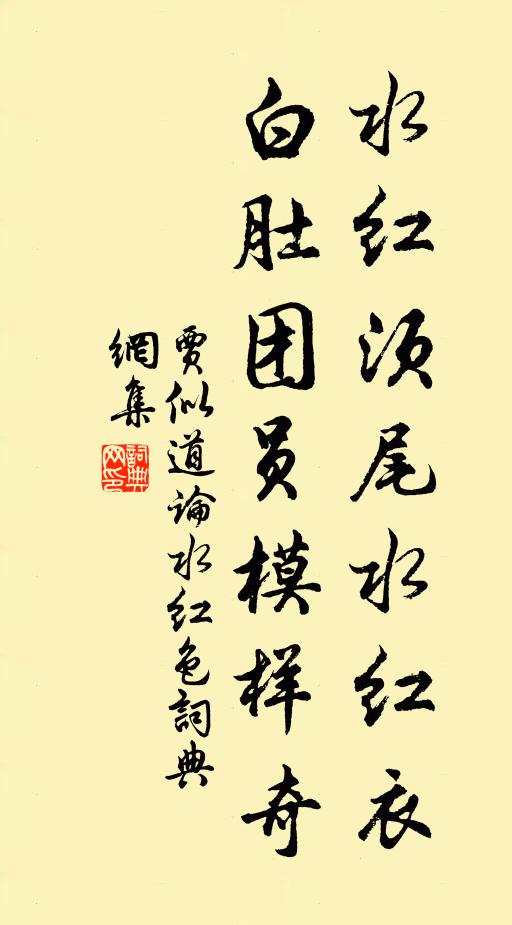 水红须尾水红衣
白肚团员模样奇
賈似道論水红色詞典
網集
詞典
网印